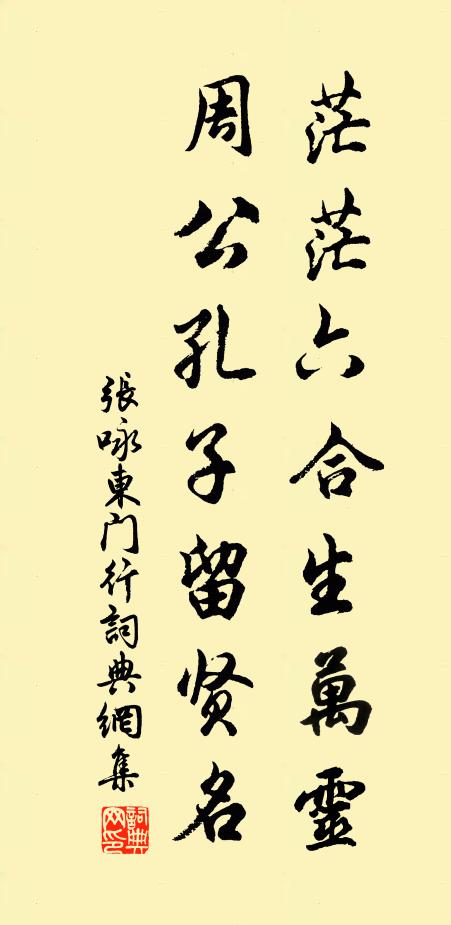 茫茫六合生萬靈
周公孔子留贤名
張咏東門行詞典網集
詞典网印